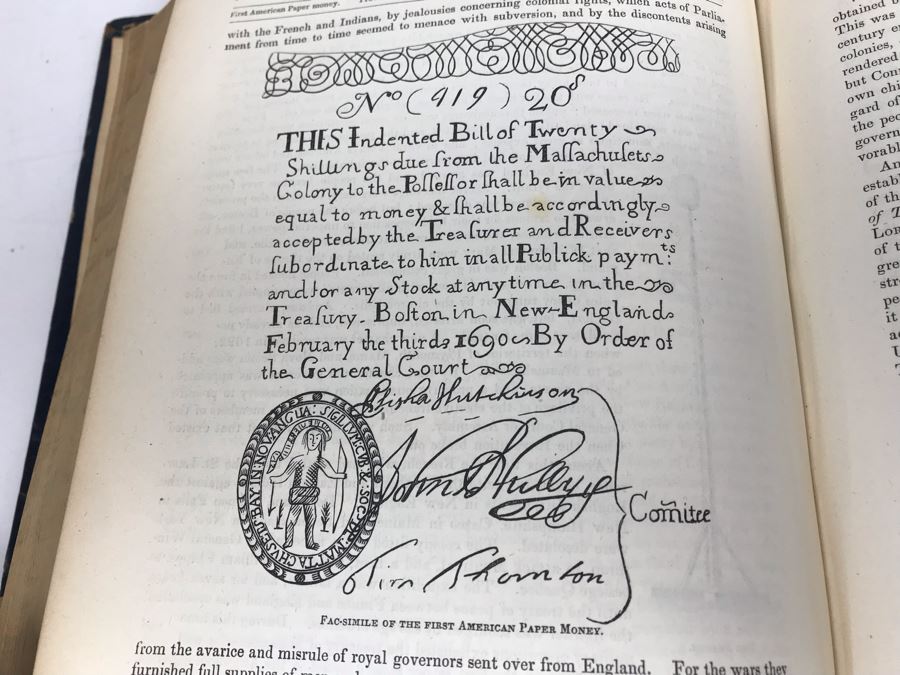 First American Paper money.
with the French and Indians, by jealousies concerning colonial rights, which acts of Parlia-
ment from time to time seemed to menace with subversion, and by the discontents arising
No (919) 20s
THIS Indented Bill of Twenty
Shillings due from the Maſſachuſets
Colony to the Poſſeſſor ſhall be in value
equal to money & ſhall be accordingly
accepted by the Treaſurer and Receivers
ſubordinate to him in all Publick paymts:
and for any Stock at any time in the
Treaſury. Boſton in New-England
February the third 1690 By Order of
the General Court
Elisha Hutchinson
Tim Thornton
Comitee
SIGILLVM: GVB: & SOC: DE: MATTACHVSETS: BAY: IN: NOV: ANGLIA:
FAC-SIMILE OF THE FIRST AMERICAN PAPER MONEY.
from the avarice and misrule of royal governors sent over from England. For the wars they
furnished full supplies of
obtained b
This was
century e
colonies,
rendered
but Con
own chi
gard of
the peo
govern
vorabl
An
estab
of th
of T
Lon
of t
gre
str
pe
it